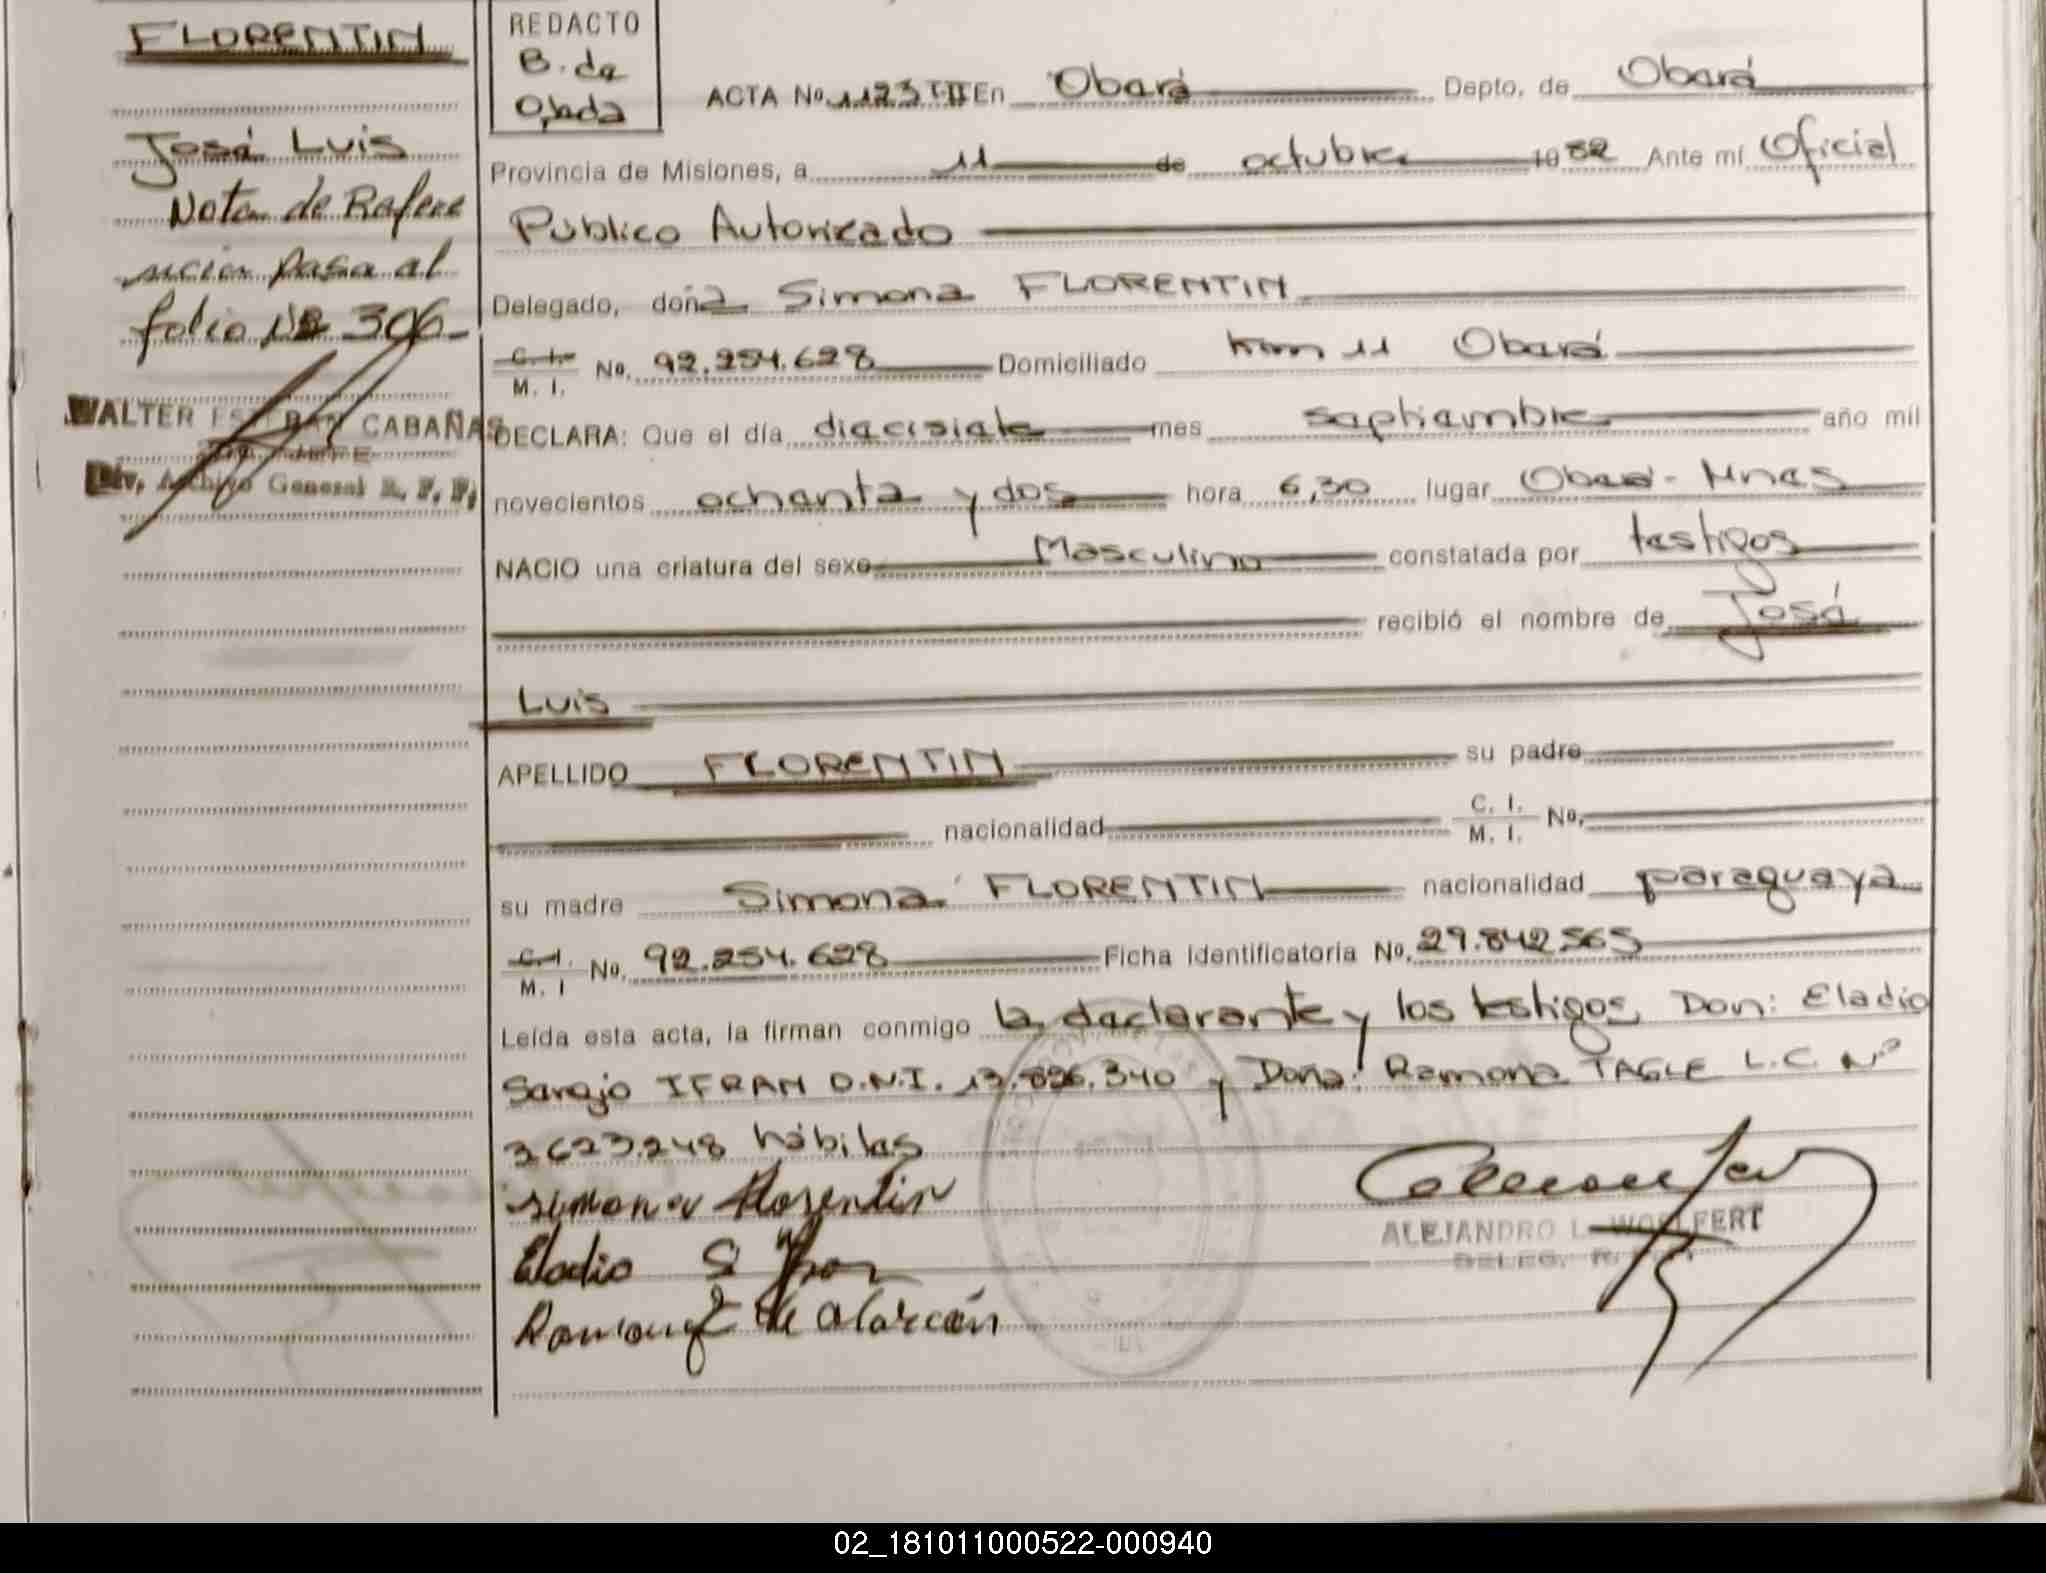 FLORENTIN
José Luis
Nota de Refere
ncia pasa al
folio Nº 306-
WALTER ESTEBAN CABAÑAS
JEFE
Div. Archivo General R. P. P.
REDACTO
B. de
Ojeda
ACTA No. 1123 TII En Oberá Depto. de Oberá
Provincia de Misiones, a 11 de octubre 1982 Ante mí Oficial
Público Autorizado
Delegado, doña Simona FLORENTIN
C. I.
M. I. No. 92.254.628 Domiciliado Km 11 Oberá
DECLARA: Que el día diecisiete mes septiembre año mil
novecientos ochenta y dos hora 6,30 lugar Oberá - Mnes
NACIO una criatura del sexo Masculino constatada por testigos
recibió el nombre de José
Luis
APELLIDO FLORENTIN su padre
nacionalidad C. I.
M. I. No.
su madre Simona FLORENTIN nacionalidad paraguaya
C. I.
M. I No. 92.254.628 Ficha identificatoria No. 29.842.565
Leída esta acta, la firman conmigo la declarante y los testigos, Don: Eladio
Sarajo IFRAN D.N.I. 13.896.340 y Doña: Ramona TAGLE L.C. Nº
3623.248 hábiles
Simona Florentin
Eladio S Ifran
Ramona T de Alarcón
ALEJANDRO L. WOLFERT
DELEG. R.
02_181011000522-000940